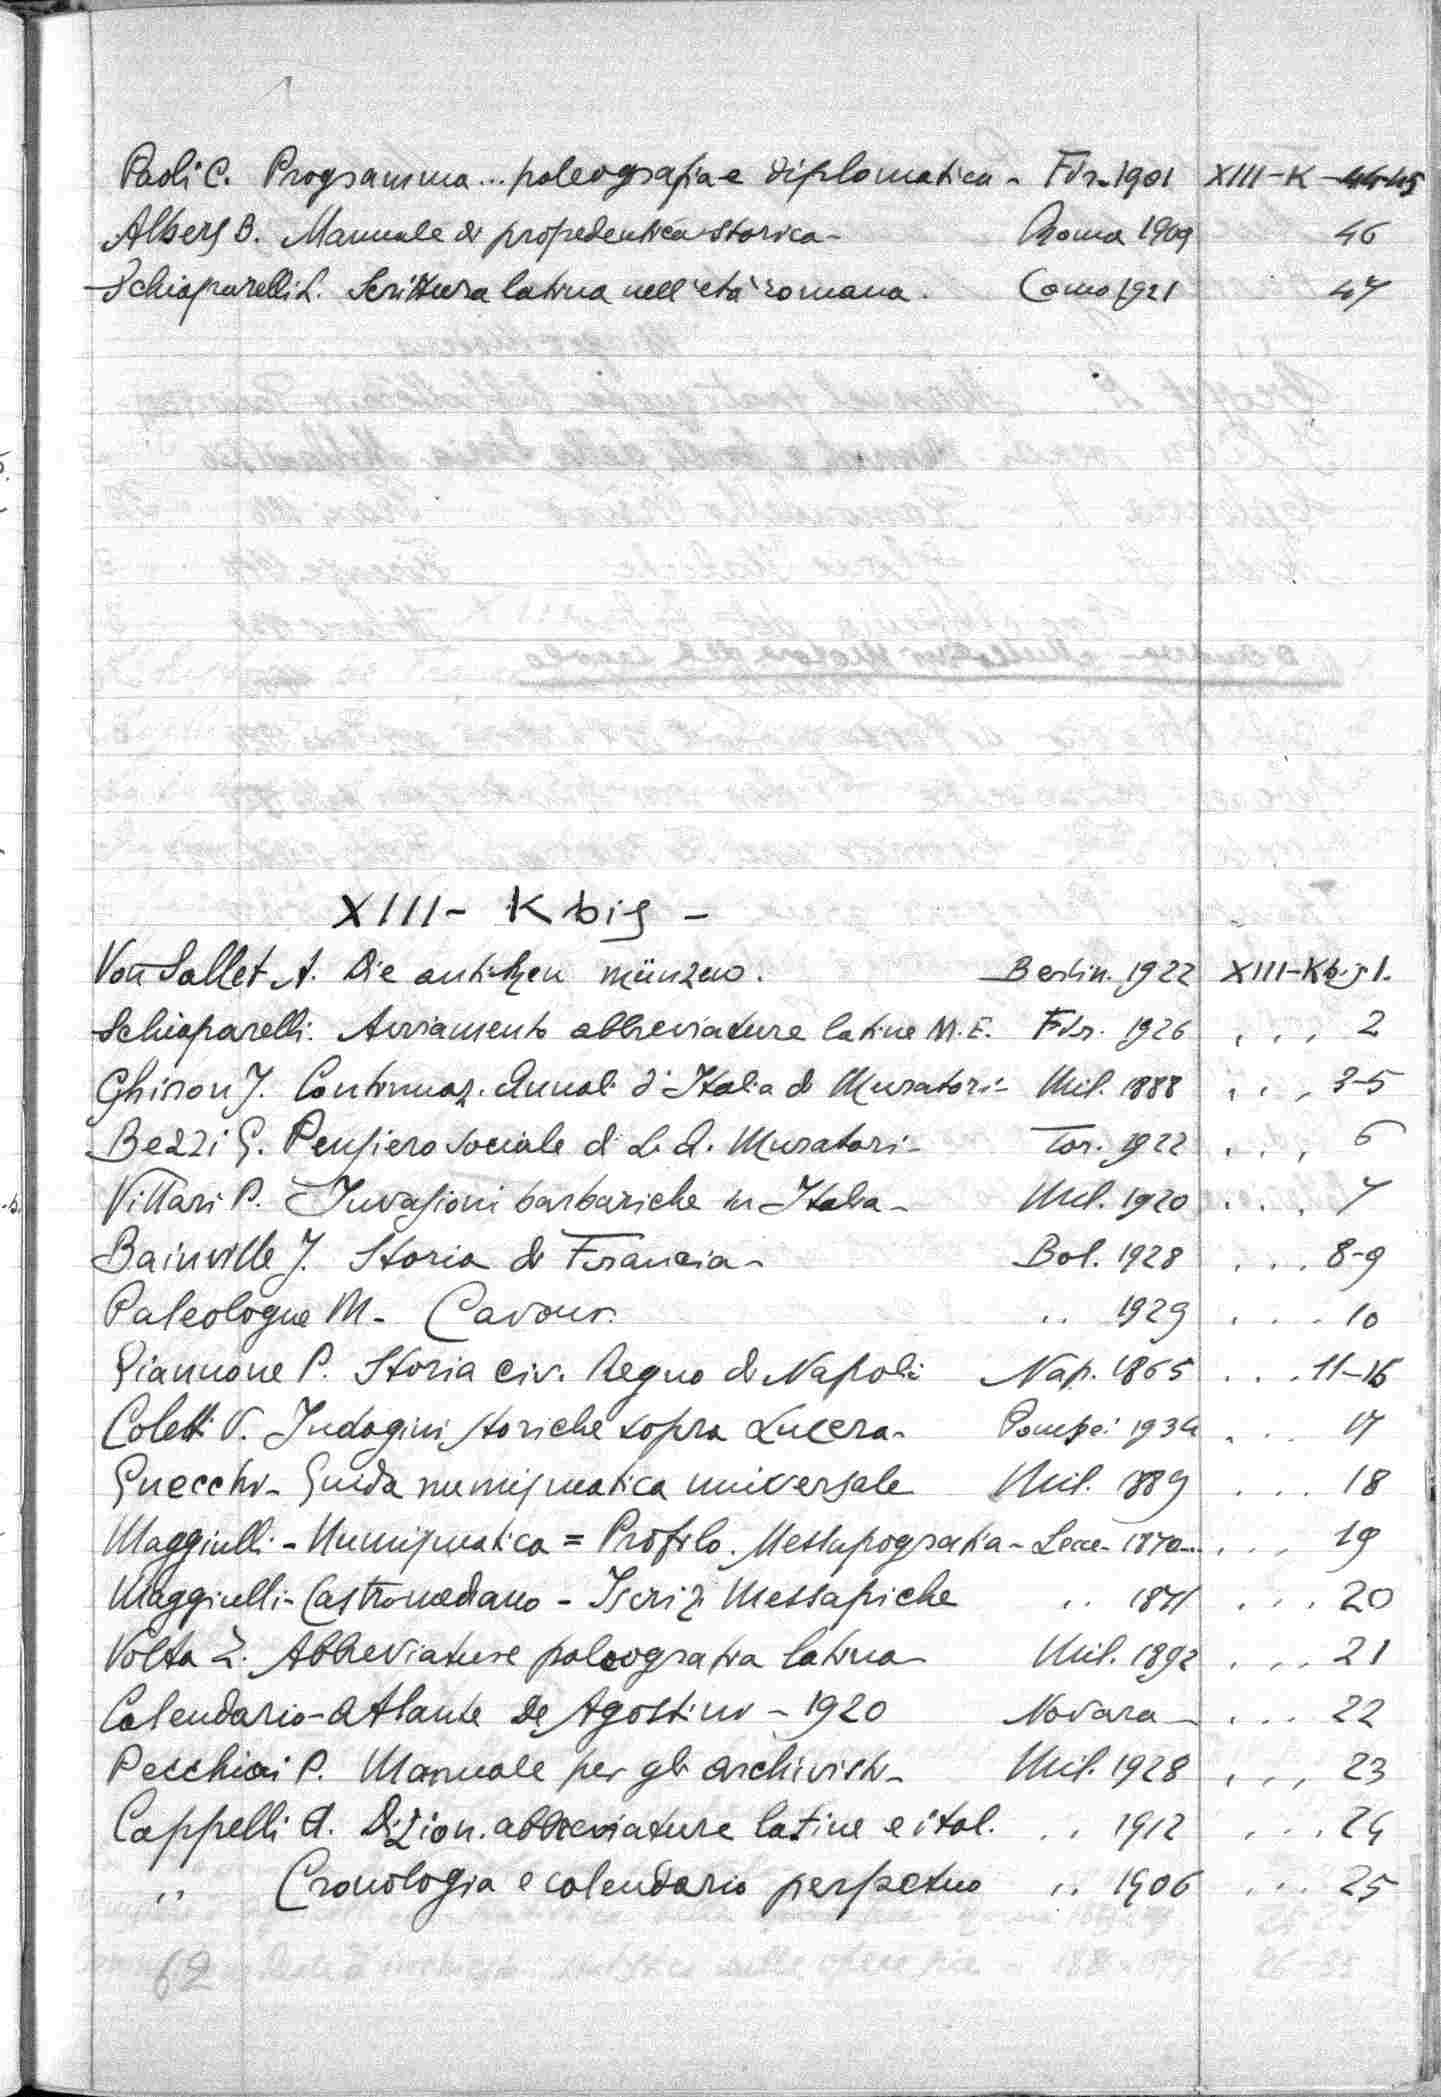 Paoli C. Programma... paleografia e diplomatica - Fir. 1901 XIII-K-44-45
Albers B. Manuale di propedeutica storica - Roma 1909 46
Schiaparelli L. Scrittura latina nell'età romana. Como 1921 47
XIII - K bis -
Von Sallet A. Die antiken münzen. Berlin. 1922 XIII-Kbis 1.
Schiaparelli. Avviamento abbreviature latine M.E. Fir. 1926 . . . 2
Ghiron J. Continuaz. Annali d'Italia di Muratori - Mil. 1888 . . . 3-5
Bezzi G. Pensiero sociale di L. A. Muratori - Tor. 1922 . . . 6
Villari P. Invasioni barbariche in Italia - Mil. 1920 . . . 7
Bainville J. Storia di Francia - Bol. 1928 . . . 8-9
Paleologue M. - Cavour. .. 1929 . . . 10
Giannone P. Storia civ. Regno di Napoli Nap. 1865 . . . 11-16
Coletti V. Indagini storiche sopra Lucera - Pompei 1934 . . . 17
Gnecchi - Guida numismatica universale Mil. 1889 . . . 18
Maggiulli - Numismatica = Profilo. Messapografia - Lecce - 1870... . . . 19
Maggiulli - Castromediano - Iscriz. Messapiche .. 1871 . . . 20
Volta Z. Abbreviature paleografia latina - Mil. 1892 . . . 21
Calendario - Atlante De Agostini - 1920 Novara - . . . 22
Pecchiai P. Manuale per gli archivisti - Mil. 1928 . . . 23
Cappelli A. Dizion. abbreviature latine e ital. .. 1912 . . . 24
.. Cronologia e calendario perpetuo .. 1906 . . . 25
62